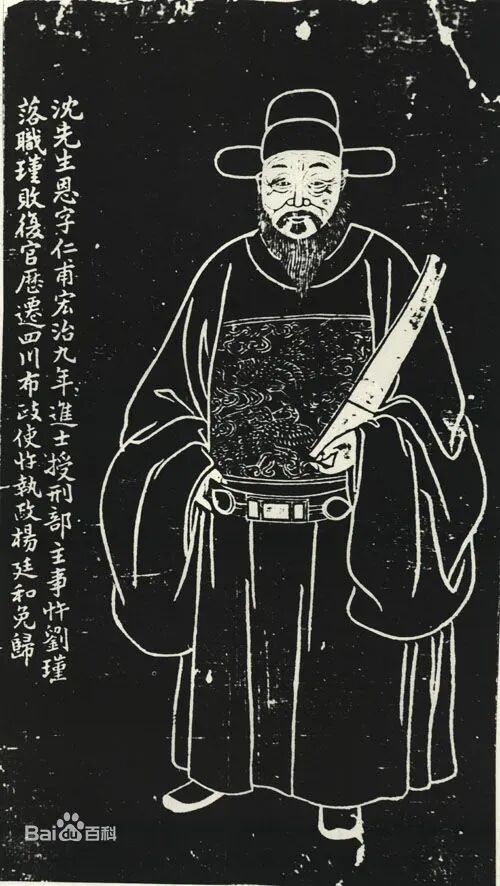 沈先生恩字仁甫宏治九年進士授刑部主事忤劉瑾
落職瑾敗後官歷遷四川布政使忤執政楊廷和免歸
Bai百科